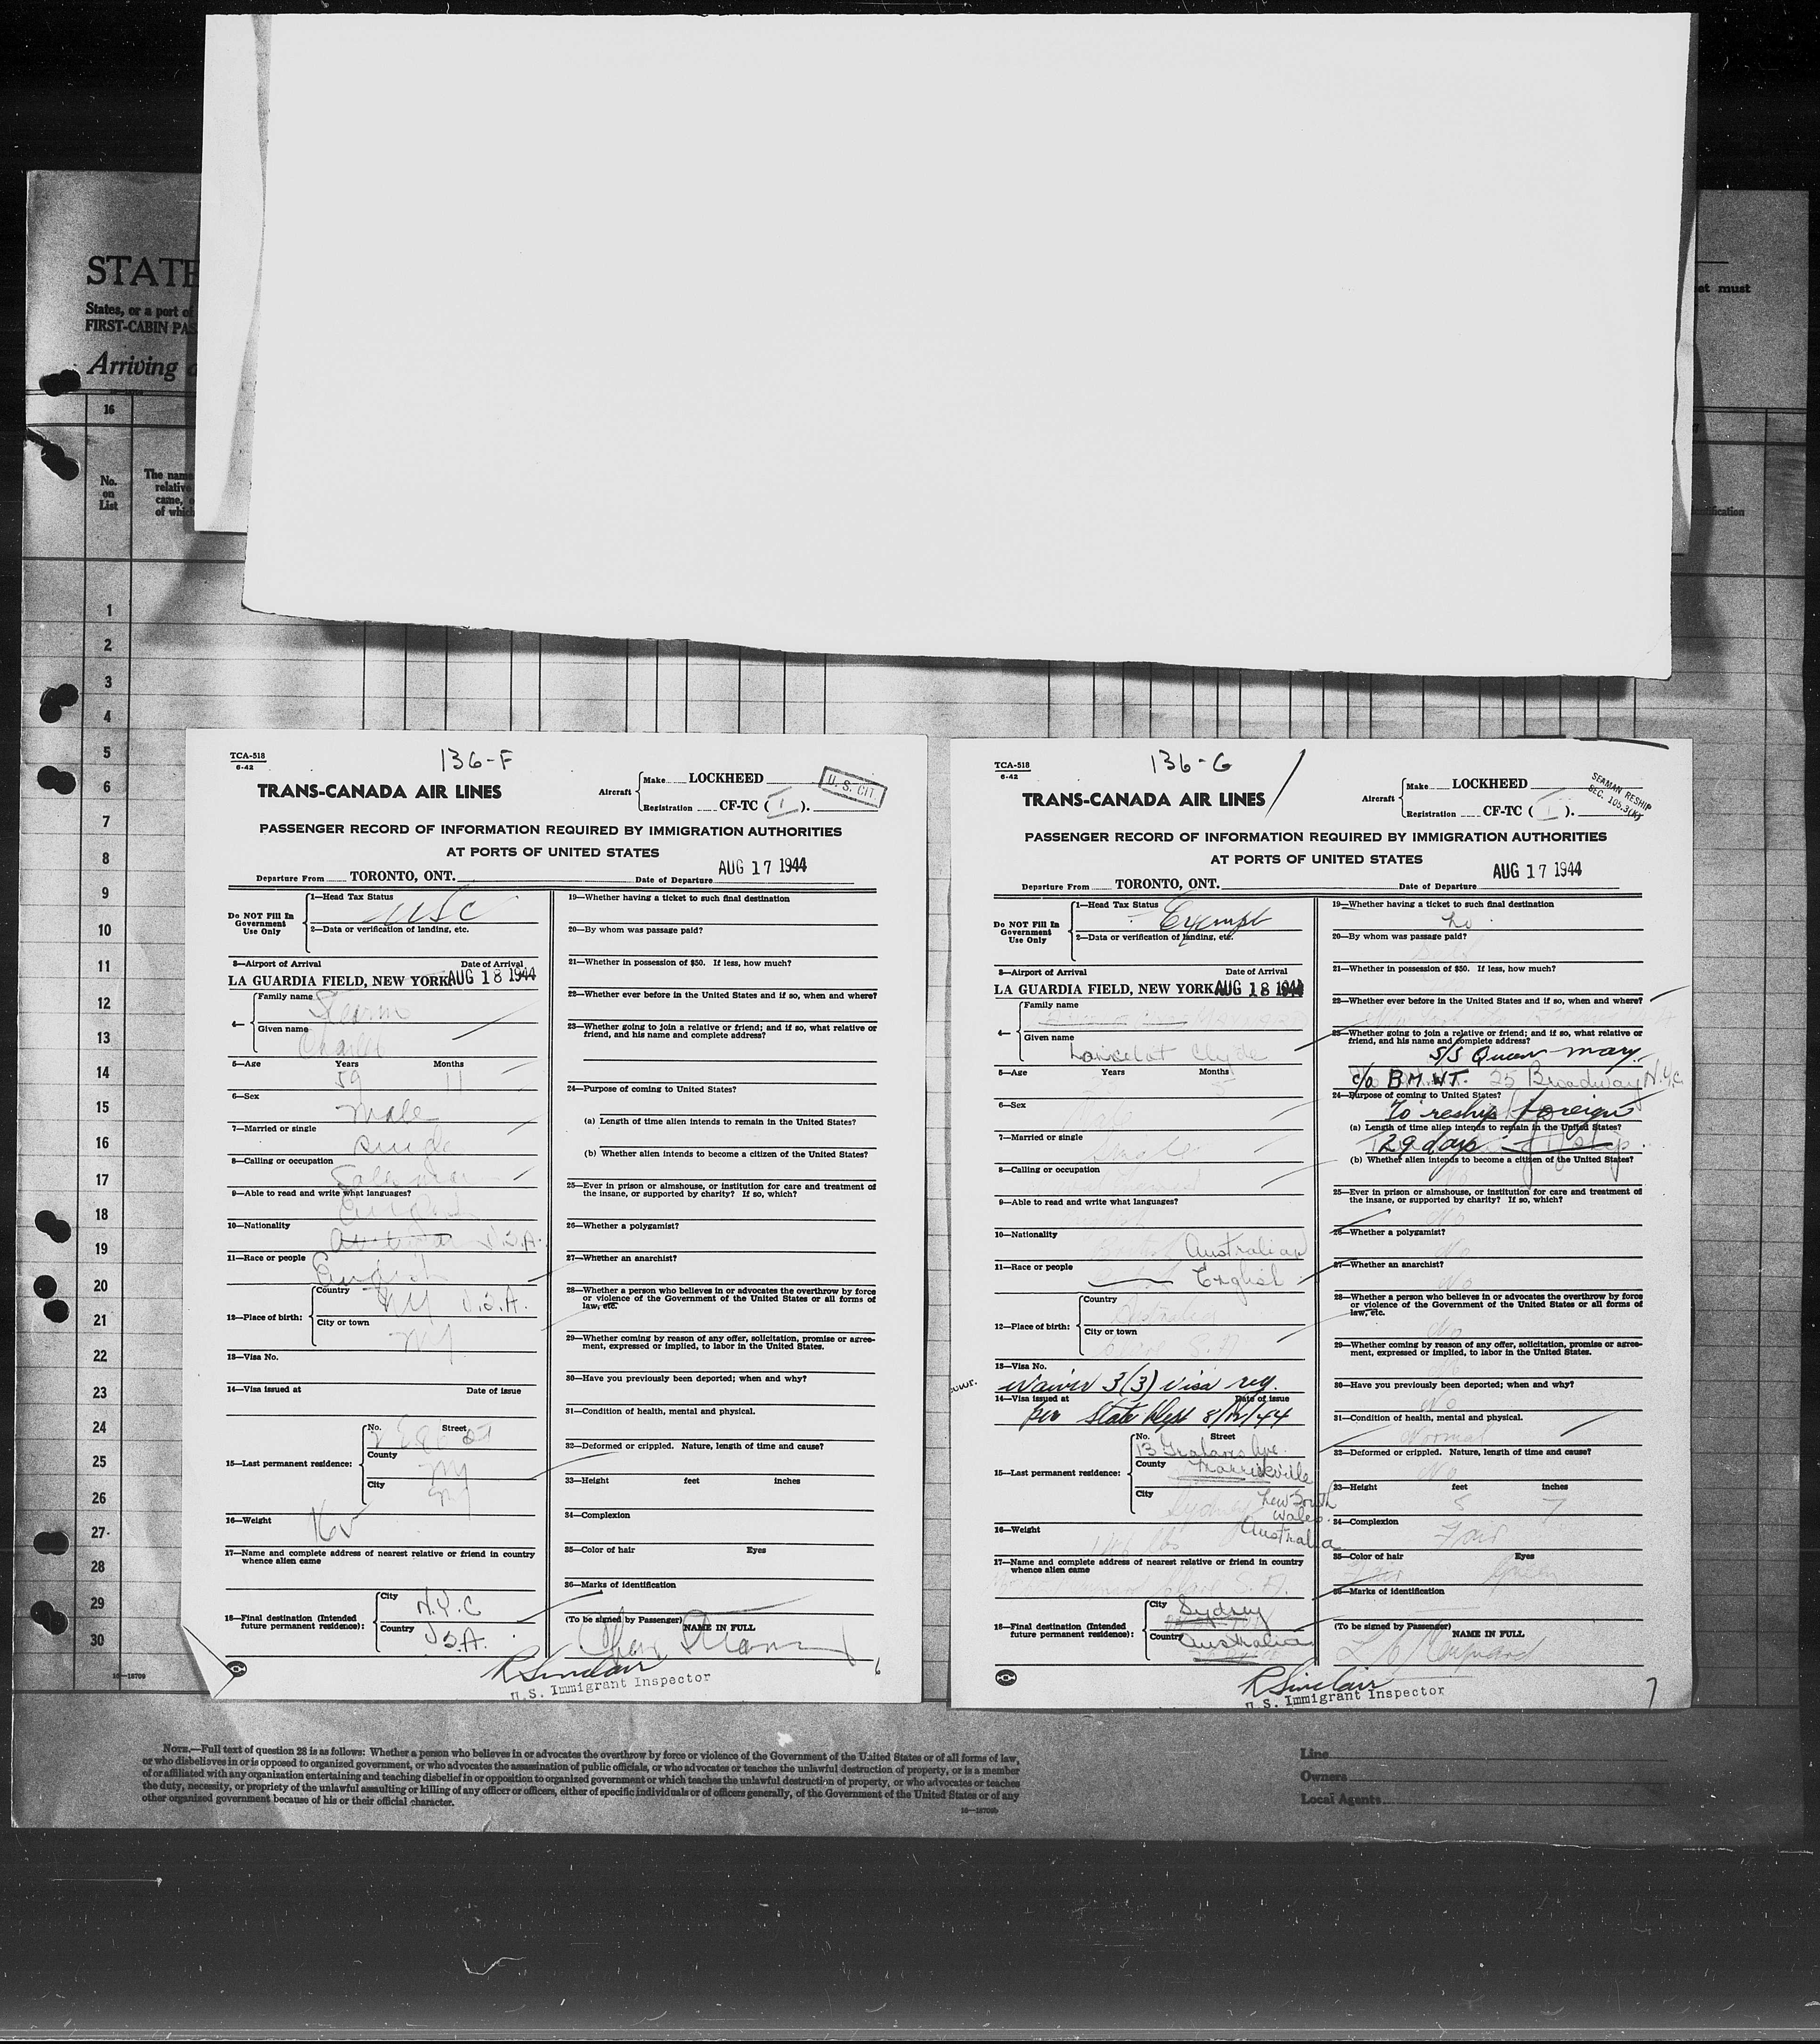 STATE
States, or a port of
FIRST-CABIN PAS
Arriving
et must
16
No.
on
List
The name
relative
came,
of which
1
2
3
4
5
6
7
8
9
10
11
12
13
14
15
16
17
18
19
20
21
22
23
24
25
26
27
28
29
30
TCA-518
6-42
136-F
TRANS-CANADA AIR LINES
Aircraft
Make LOCKHEED
Registration CF-TC ( I ).
U. S. CIT.
PASSENGER RECORD OF INFORMATION REQUIRED BY IMMIGRATION AUTHORITIES
AT PORTS OF UNITED STATES
Departure From TORONTO, ONT. Date of Departure AUG 17 1944
Do NOT Fill In
Government
Use Only
1—Head Tax Status
USC
2—Data or verification of landing, etc.
3—Airport of Arrival Date of Arrival
LA GUARDIA FIELD, NEW YORK AUG 18 1944
4— Family name
Given name
Charles
5—Age Years Months
59 11
6—Sex
Male
7—Married or single
Single
8—Calling or occupation
Salesman
9—Able to read and write what languages?
English
10—Nationality
U.S.A.
11—Race or people
English
12—Place of birth:
Country
NY U.S.A.
City or town
NY
13—Visa No.
14—Visa issued at Date of issue
15—Last permanent residence:
No. Street
County
NY
City
NY
16—Weight
17—Name and complete address of nearest relative or friend in country
whence alien came
18—Final destination (Intended
future permanent residence):
City
N.Y.C
Country
U.S.A.
19—Whether having a ticket to such final destination
20—By whom was passage paid?
21—Whether in possession of $50. If less, how much?
22—Whether ever before in the United States and if so, when and where?
23—Whether going to join a relative or friend; and if so, what relative or
friend, and his name and complete address?
24—Purpose of coming to United States?
(a) Length of time alien intends to remain in the United States?
(b) Whether alien intends to become a citizen of the United States?
25—Ever in prison or almshouse, or institution for care and treatment of
the insane, or supported by charity? If so, which?
26—Whether a polygamist?
27—Whether an anarchist?
28—Whether a person who believes in or advocates the overthrow by force
or violence of the Government of the United States or all forms of
law, etc.
29—Whether coming by reason of any offer, solicitation, promise or agree-
ment, expressed or implied, to labor in the United States.
30—Have you previously been deported; when and why?
31—Condition of health, mental and physical.
32—Deformed or crippled. Nature, length of time and cause?
33—Height feet inches
34—Complexion
35—Color of hair Eyes
36—Marks of identification
(To be signed by Passenger) NAME IN FULL
R Sinclair
U.S. Immigrant Inspector
6
TCA-518
6-42
136-G
TRANS-CANADA AIR LINES
Aircraft
Make LOCKHEED
Registration CF-TC ( I ).
SEAMAN RESHIP
SEC. 105.3(K)
PASSENGER RECORD OF INFORMATION REQUIRED BY IMMIGRATION AUTHORITIES
AT PORTS OF UNITED STATES
Departure From TORONTO, ONT. Date of Departure AUG 17 1944
Do NOT Fill In
Government
Use Only
1—Head Tax Status
Exempt
2—Data or verification of landing, etc.
3—Airport of Arrival Date of Arrival
LA GUARDIA FIELD, NEW YORK AUG 18 1944
4— Family name
Given name
Lancelot Clyde
5—Age Years Months
5
6—Sex
Male
7—Married or single
Single
8—Calling or occupation
9—Able to read and write what languages?
10—Nationality
British Australian
11—Race or people
English
12—Place of birth:
Country
Australia
City or town
S. A.
13—Visa No.
Waiver 3(3) visa reg.
14—Visa issued at Date of issue
per State Dept 8/12/44
15—Last permanent residence:
No. Street
13 Grahams Ave.
County
Marrickville
City
Sydney New South
Wales
Australia
16—Weight
lbs
17—Name and complete address of nearest relative or friend in country
whence alien came
S. A.
18—Final destination (Intended
future permanent residence):
City
Sydney
Country
Australia
19—Whether having a ticket to such final destination
No
20—By whom was passage paid?
21—Whether in possession of $50. If less, how much?
22—Whether ever before in the United States and if so, when and where?
23—Whether going to join a relative or friend; and if so, what relative or
friend, and his name and complete address?
S/S Queen Mary
c/o B.M.W.T. 25 Broadway N.Y.C.
24—Purpose of coming to United States?
To reship foreign
(a) Length of time alien intends to remain in the United States?
29 days
(b) Whether alien intends to become a citizen of the United States?
25—Ever in prison or almshouse, or institution for care and treatment of
the insane, or supported by charity? If so, which?
No
26—Whether a polygamist?
No
27—Whether an anarchist?
No
28—Whether a person who believes in or advocates the overthrow by force
or violence of the Government of the United States or all forms of
law, etc.
No
29—Whether coming by reason of any offer, solicitation, promise or agree-
ment, expressed or implied, to labor in the United States.
30—Have you previously been deported; when and why?
No
31—Condition of health, mental and physical.
Normal
32—Deformed or crippled. Nature, length of time and cause?
No
33—Height feet inches
5 7
34—Complexion
Fair
35—Color of hair Eyes
Fair Green
36—Marks of identification
(To be signed by Passenger) NAME IN FULL
R Sinclair
U.S. Immigrant Inspector
7
16—18709
NOTE.—Full text of question 28 is as follows: Whether a person who believes in or advocates the overthrow by force or violence of the Government of the United States or of all forms of law,
or who disbelieves in or is opposed to organized government, or who advocates the assassination of public officials, or who advocates or teaches the unlawful destruction of property, or is a member
of or affiliated with any organization entertaining and teaching disbelief in or opposition to organized government or which teaches the unlawful destruction of property, or who advocates or teaches
the duty, necessity, or propriety of the unlawful assaulting or killing of any officer or officers, either of specific individuals or of officers generally, of the Government of the United States or of any
other organized government because of his or their official character.
16—18709b
Line
Owners
Local Agents